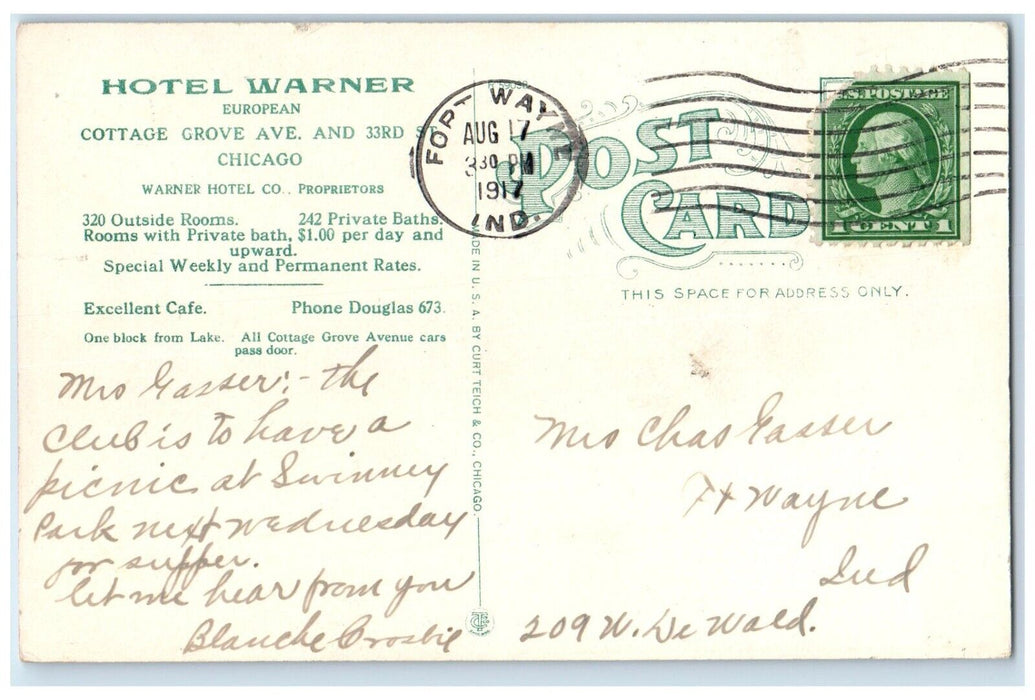 HOTEL WARNER
EUROPEAN
COTTAGE GROVE AVE. AND 33RD ST.
CHICAGO
WARNER HOTEL CO., PROPRIETORS
320 Outside Rooms. 242 Private Baths.
Rooms with Private bath, $1.00 per day and
upward.
Special Weekly and Permanent Rates.
Excellent Cafe. Phone Douglas 673.
One block from Lake. All Cottage Grove Avenue cars
pass door.
Mrs Gasser:- the
Club is to have a
picnic at Swinney
Park next Wednesday
for supper.
let me hear from you
Blanche Crosbie
MADE IN U. S. A. BY CURT TEICH & CO., CHICAGO.
FORT WAYNE
AUG 17
330 PM
1917
IND.
POST
CARD
U.S. POSTAGE
1 CENT 1
THIS SPACE FOR ADDRESS ONLY.
Mrs Chas Gasser
Ft Wayne
Ind
209 W. De Wald.